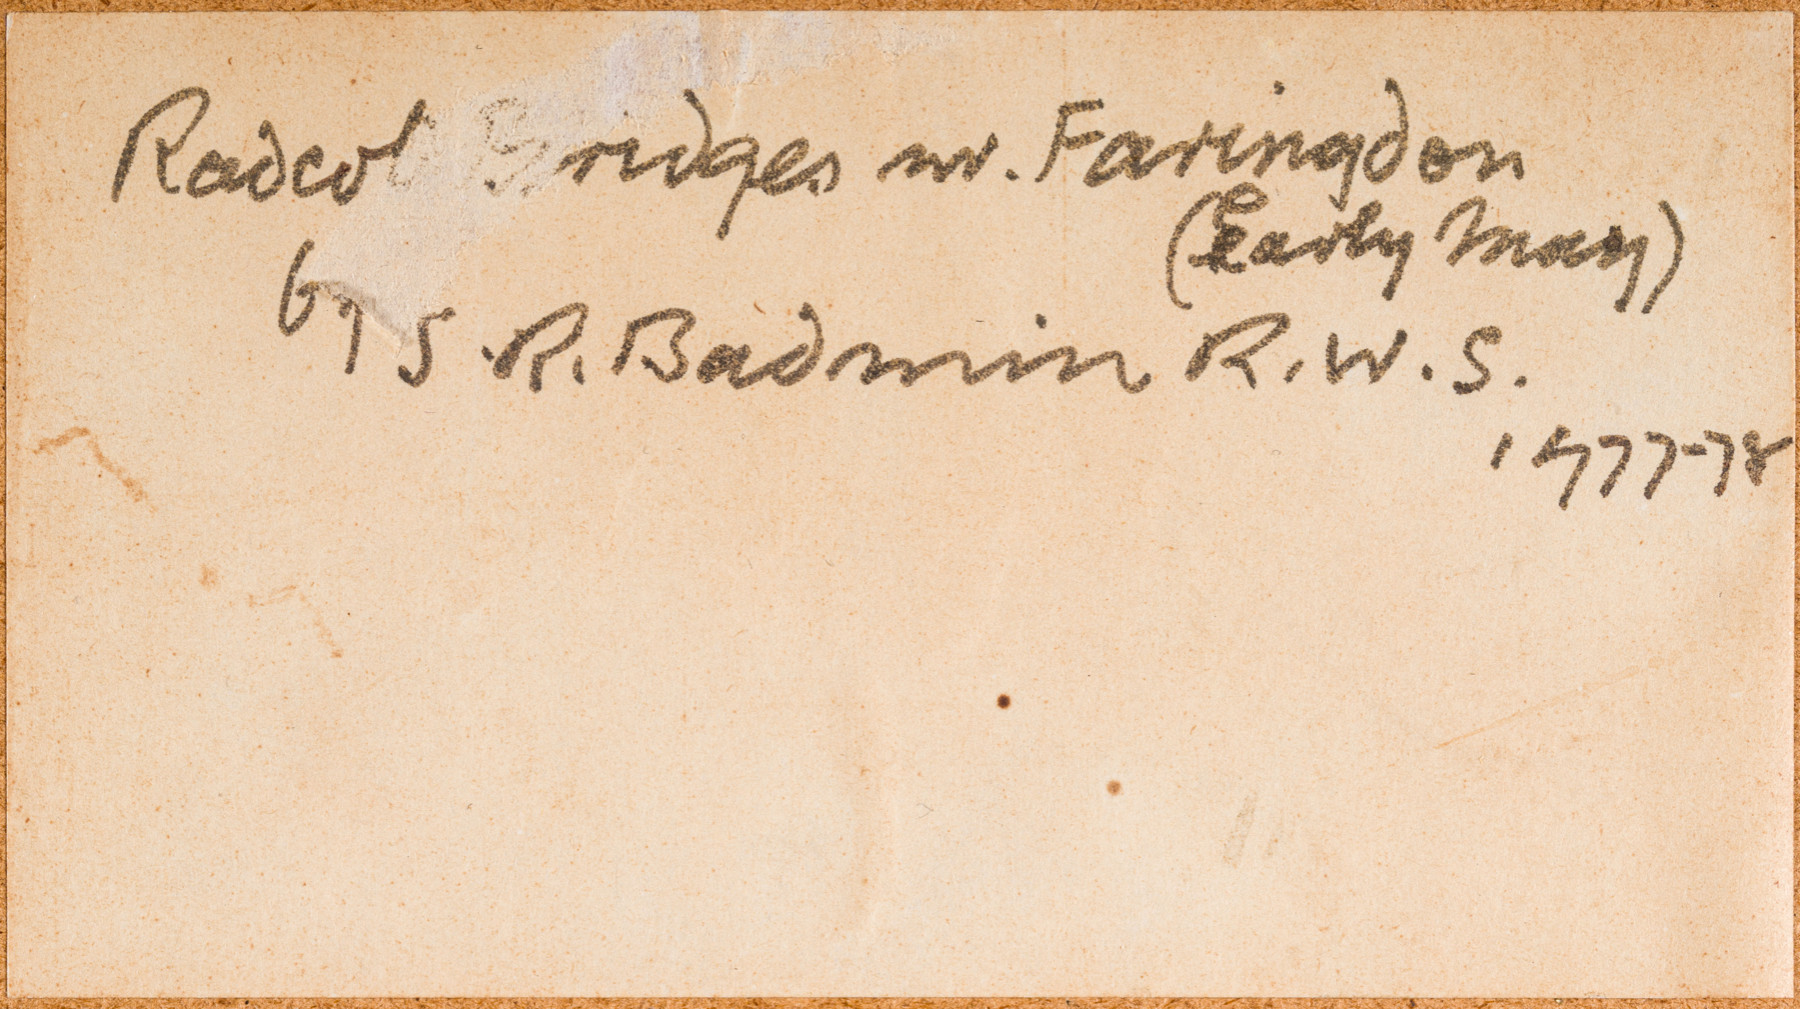 Radcot Bridges nr. Faringdon
(Early May)
by S.R. Badmin R.W.S.
1977-78